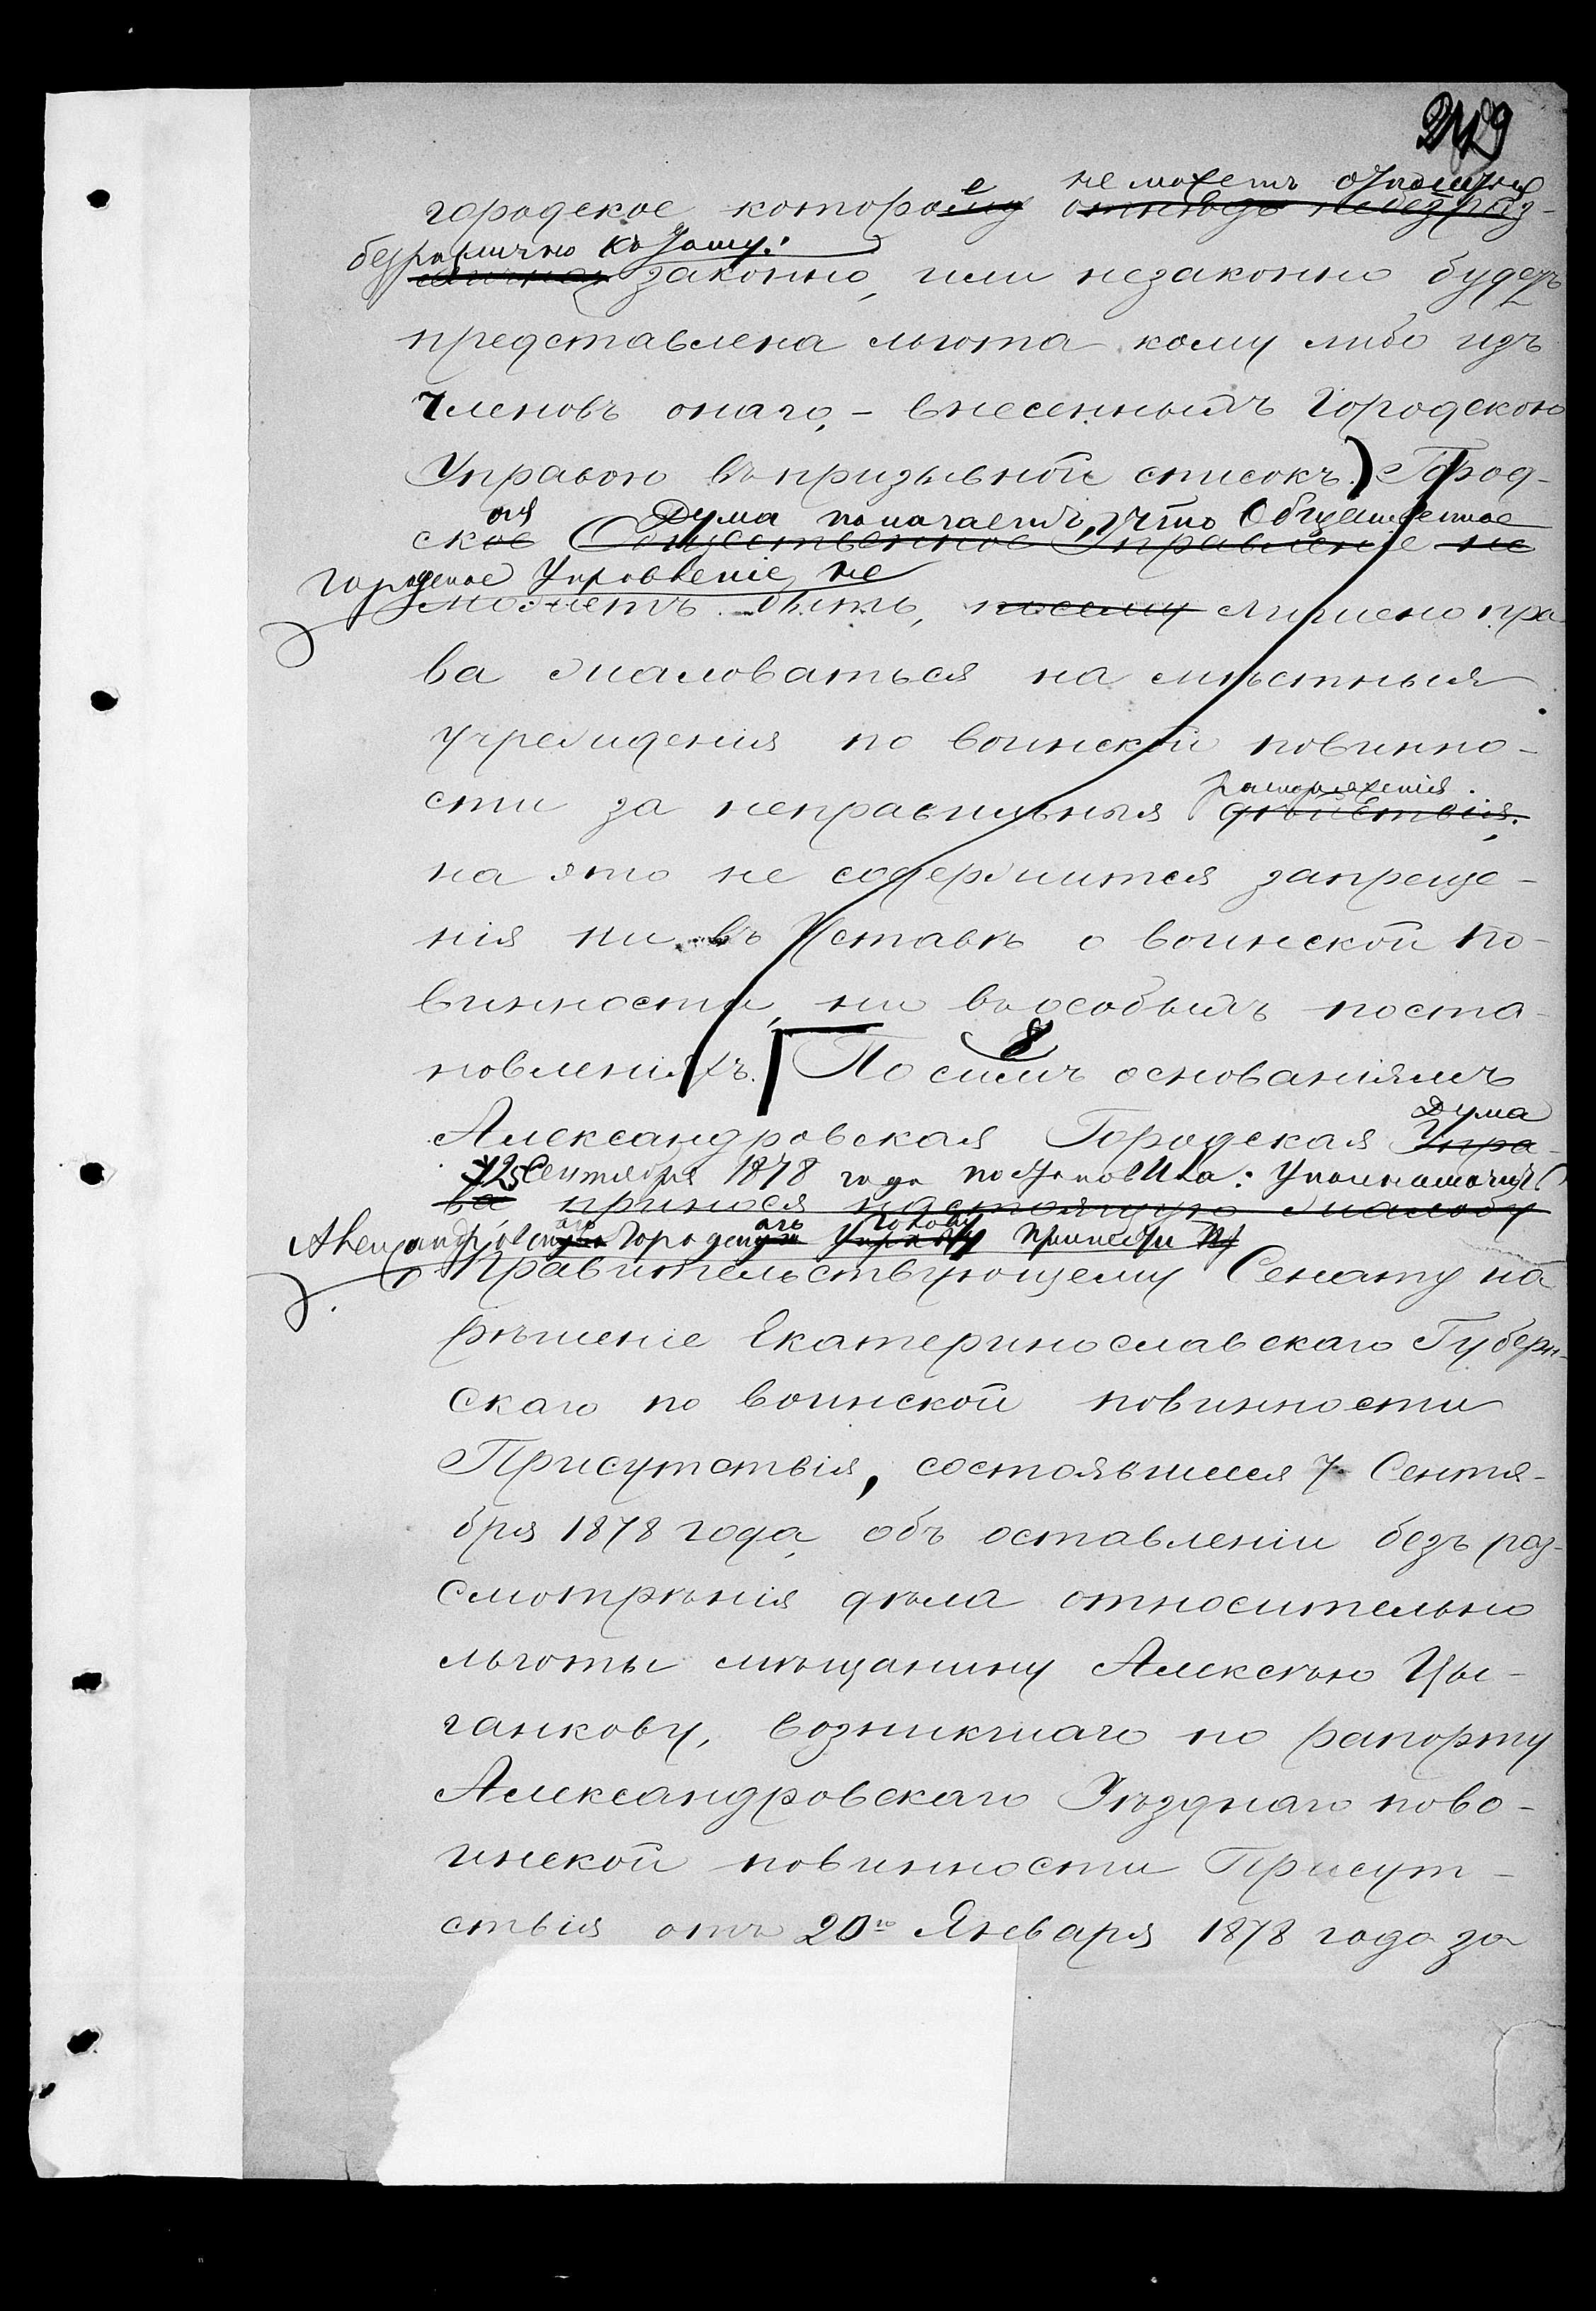 249
не можетъ относиться
городское которое ому отнюдь небезраз-
безразлично къ тому:
личная законно, или незаконно будетъ
представлена льгота кому либо изъ
членовъ онаго, - внесеннымъ Городскою
Управою въ призывной списокъ.) Город-
ая Дума полагаетъ, что Общественное
ское Общественное Управление не
городское Управленіе не
можетъ быть, посему лишено пра
ва жаловаться на мѣстныя
учрежденія по воинской повинно-
распоряженія.
сти за неправильныя дѣйствія,
на это не содержится запреще-
нія ни въ Уставѣ о воинской по-
винности, ни въ особыхъ поста-
новленіяхъ. По симъ основаніямъ
8
Дума
Александровская Городская Упра-
12 Сентября 1878 года постановила: Уполномочить
ва принося настоящую жалобу
Александровскаго Городскаго Голову принести
Правительствующему Сенату на
рѣшеніе Екатеринославскаго Губерн-
скаго по воинской повинности
Присутствія, состоявшееся 7 Сентя-
бря 1878 года, объ оставленіи безъ раз-
смотрѣнія дѣла относительно
льготы мѣщанину Алексѣю Цы-
ганкову, возникшаго по рапорту
Александровскаго Уѣзднаго пово-
инской повинности Присут-
ствія отъ 20го Января 1878 года за